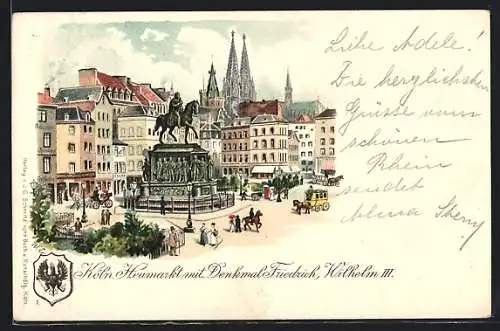 Liebe Adele!
Die herzlichsten
Grüsse vom
schönen
Rhein
sendet
Alma
Köln. Heumarkt mit Denkmal Friedrich, Wilhelm III.